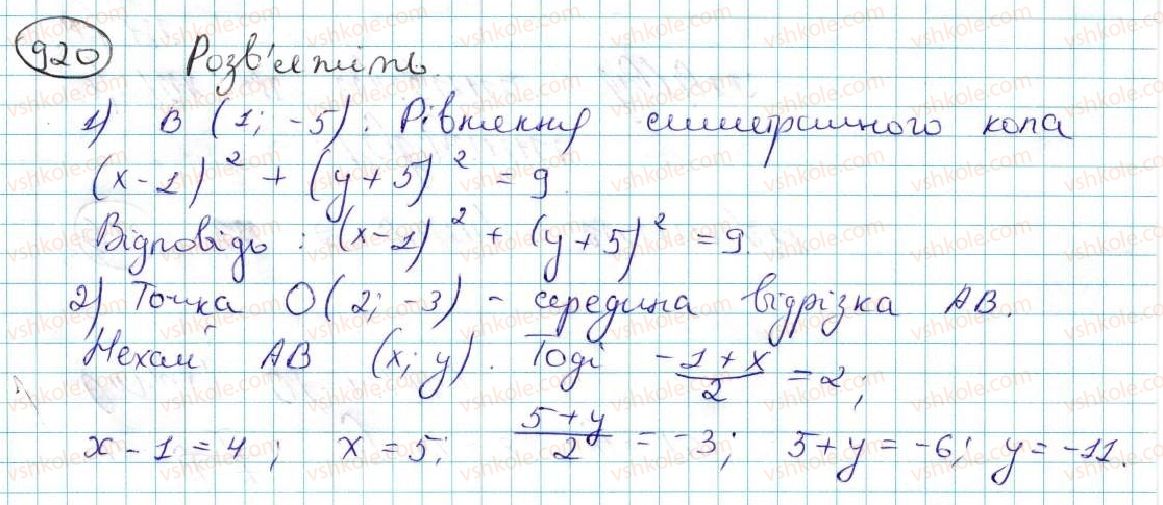 920 Розв'яжіть.
1) В (1; -5). Рівняння симетричного кола
(x-1)² + (y+5)² = 9.
Відповідь: (x-1)² + (y+5)² = 9.
2) Точка О(2; -3) - середина відрізка АВ.
Нехай АВ (x; y). Тоді (-1+x)/2 = 2;
x - 1 = 4; x = 5; (5+y)/2 = -3; 5+y = -6; y = -11.